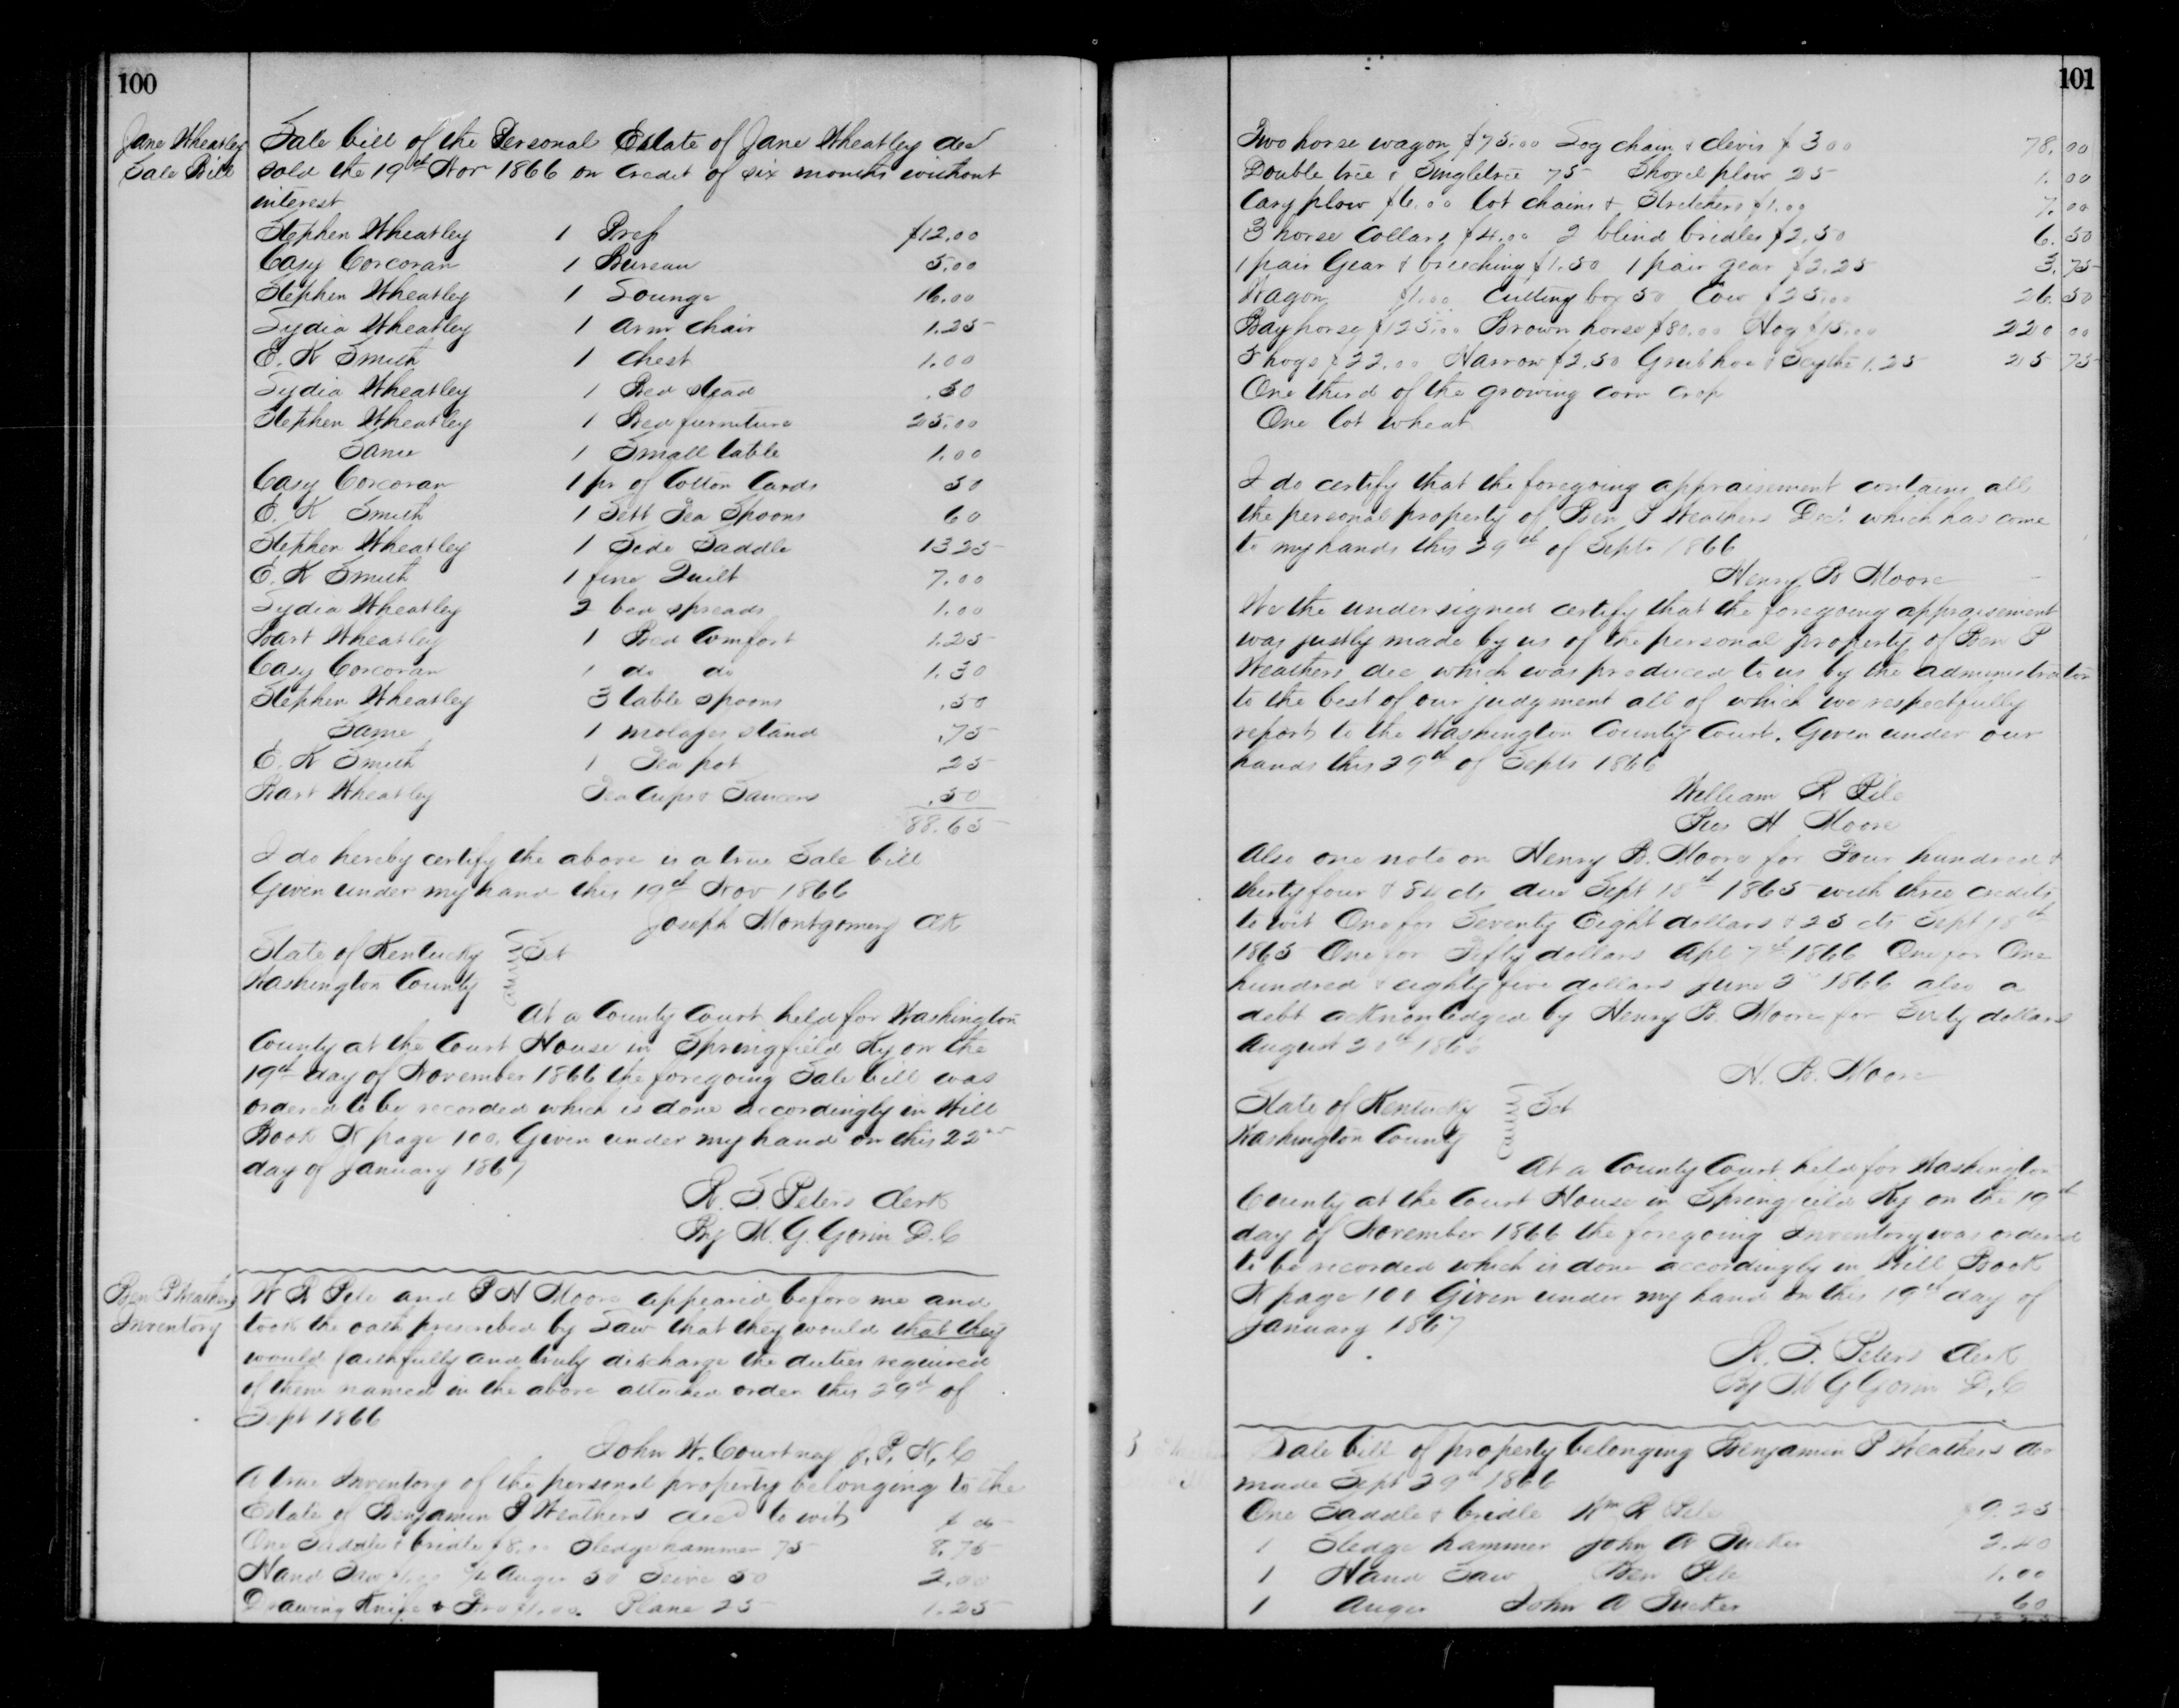 100
Jane Wheatley
Sale Bill
Sale bill of the Personal Estate of Jane Wheatley decd
sold the 19th Nov 1866 on credit of six months without
interest
Stephen Wheatley 1 Press $12.00
Casy Corcoran 1 Bureau 5.00
Stephen Wheatley 1 Lounge 16.00
Lydia Wheatley 1 arm chair 1.25
E. K Smith 1 chest 1.00
Lydia Wheatley 1 Bed stead .50
Stephen Wheatley 1 Bed furniture 25.00
Same 1 Small table 1.00
Casy Corcoran 1 pr of Cotton Cards 50
E. K Smith 1 Sett Tea Spoons 60
Stephen Wheatley 1 Side Saddle 13 25
E. K Smith 1 fine Quilt 7.00
Lydia Wheatley 2 bed spreads 1.00
Bart Wheatley 1 Bed Comfort 1.25
Casy Corcoran 1 do do 1.30
Stephen Wheatley 3 table spoons .50
Same 1 molases stand .75
E. K Smith 1 Tea pot .25
Bart Wheatley Tea Cups & Saucers .50
88.65
I do hereby certify the above is a true Sale bill
Given under my hand this 19th Nov 1866
Joseph Montgomery Clk
State of Kentucky
Washington County Sct
At a County Court held for Washington
County at the Court House in Springfield Ky on the
19th day of November 1866 the foregoing Sale bill was
ordered to be recorded which is done accordingly in Will
Book N page 100. Given under my hand on this 22nd
day of January 1867
W. F. Peters Clerk
By M. G. Gorin D.C
Ben P Weathers
Inventory
W R Pile and P H Moore appeared before me and
took the oath prescribed by Law that they would that they
would faithfully and truly discharge the duties required
of them named in the above attached order this 29th of
Sept 1866
John W. Courtney J. P. W. C
A true Inventory of the personal property belonging to the
Estate of Benjamin P Weathers decd to wit $ cts
One Saddle & bridle $8.00 Sledge hammer 75 8.75
Hand Saw $1.00 Auger 50 Seive 50 2.00
Drawing Knife & Fro $1.00. Plane 25 1.25
101
Two horse wagon $75.00 Log chain & clevis $3 00 78.00
Double tree & Singletree 75 Shovel plow 25 1.00
Cary plow $6.00 Lot chains & Stretchers $1.00 7.00
3 horse Collars $4.00 2 blind bridles $2.50 6.50
1 pair Gear & breeching $1.50 1 pair gear $2.25 3.75
Wagon $1.00 Cutting box 50 Cow $25.00 26.50
Bay horse $125.00 Brown horse $80.00 Hog $15.00 220 00
5 hogs $22.00 Harrow $2.50 Grub hoe & Scythe 1.25 25 75
One third of the growing corn crop
One lot wheat
I do certify that the foregoing appraisement contains all
the personal property of Ben P Weathers Decd. which has come
to my hands this 29th of Sept 1866
Henry B Moore
We the undersigned certify that the foregoing appraisement
was justly made by us of the personal property of Ben P
Weathers dec which was produced to us by the administrator
to the best of our judgment all of which we respectfully
report to the Washington County Court. Given under our
hands this 29th of Sept 1866
William R Pile
H Moore
Also one note on Henry B. Moore for Four hundred &
thirty four & 84 cts due Sept 18th 1865 with three credits
to wit One for Seventy Eight dollars & 25 cts Sept 18th
1865 One for Fifty dollars Apl 7th 1866 One for One
hundred & eighty five dollars June 2nd 1866 also a
debt acknowledged by Henry B. Moore for Sixty dollars
August 20th 1866
H. B. Moore
State of Kentucky
Washington County Sct
At a County Court held for Washington
County at the Court House in Springfield Ky on the 19th
day of November 1866 the foregoing Inventory was ordered
to be recorded which is done accordingly in Will Book
N page 100 Given under my hand on this 19th day of
January 1867
W. F. Peters Clerk
By M G Gorin D.C
Sale bill of property belonging Benjamin P Weathers dec
made Sept 29th 1866
One Saddle & bridle Wm R Pile $9.25
1 Sledge hammer John A Tucker 2.40
1 Hand Saw Ben Pile 1.00
1 Auger John A Tucker 60